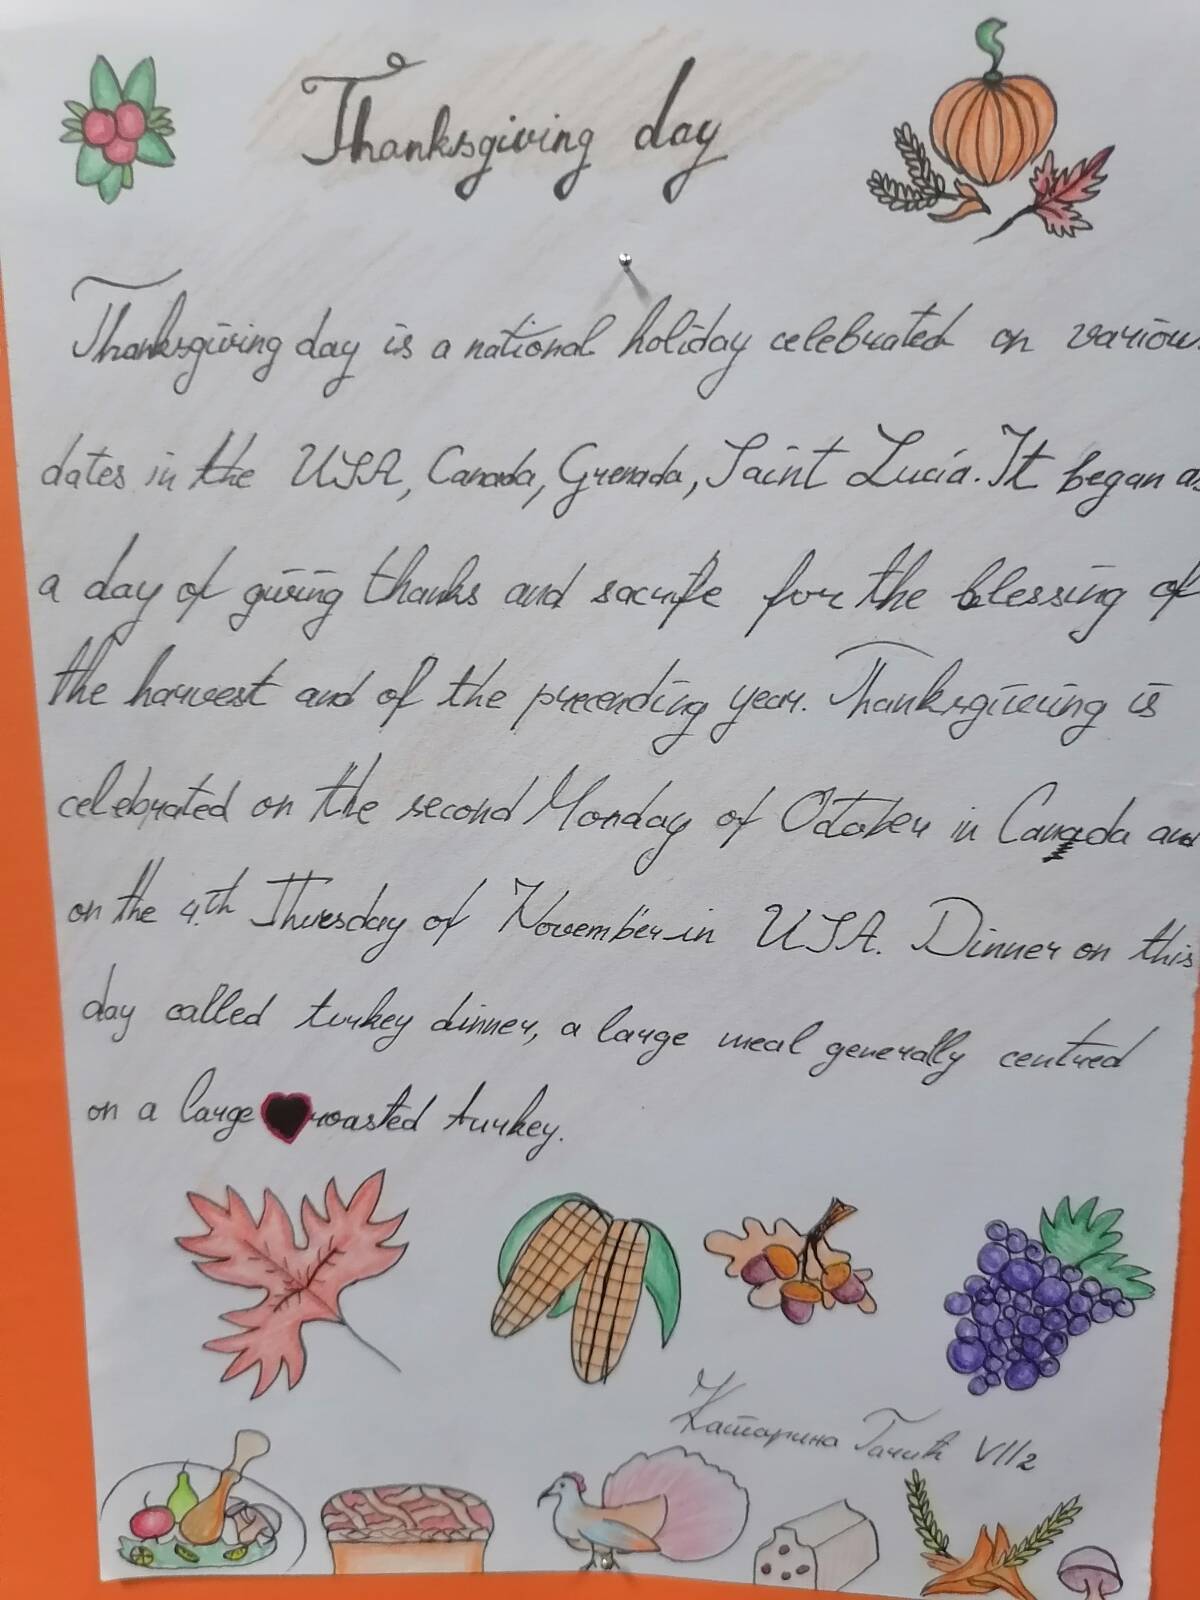 Thanksgiving day
Thanksgiving day is a national holiday celebrated on various
dates in the USA, Canada, Grenada, Saint Lucia. It began as
a day of giving thanks and sacrife for the blessing of
the harvest and of the preceding year. Thanksgiveing is
celebrated on the second Monday of October in Canada and
on the 4.th Thursday of November in USA. Dinner on this
day called turkey dinner, a large meal generally centred
on a large roasted turkey.
Катарина Гачић VII2